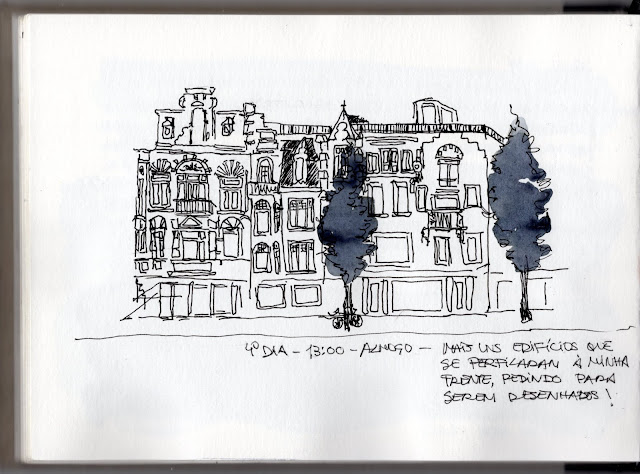 4º DIA - 13:00 - ALMOÇO - MAIS UNS EDIFÍCIOS QUE
SE PERFILARAM À MINHA
FRENTE, PEDINDO PARA
SEREM DESENHADOS!